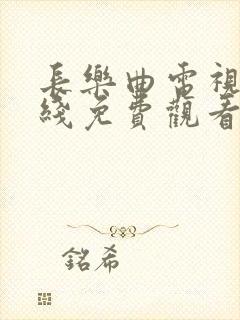 長樂曲電視
綫免費觀看
銘希